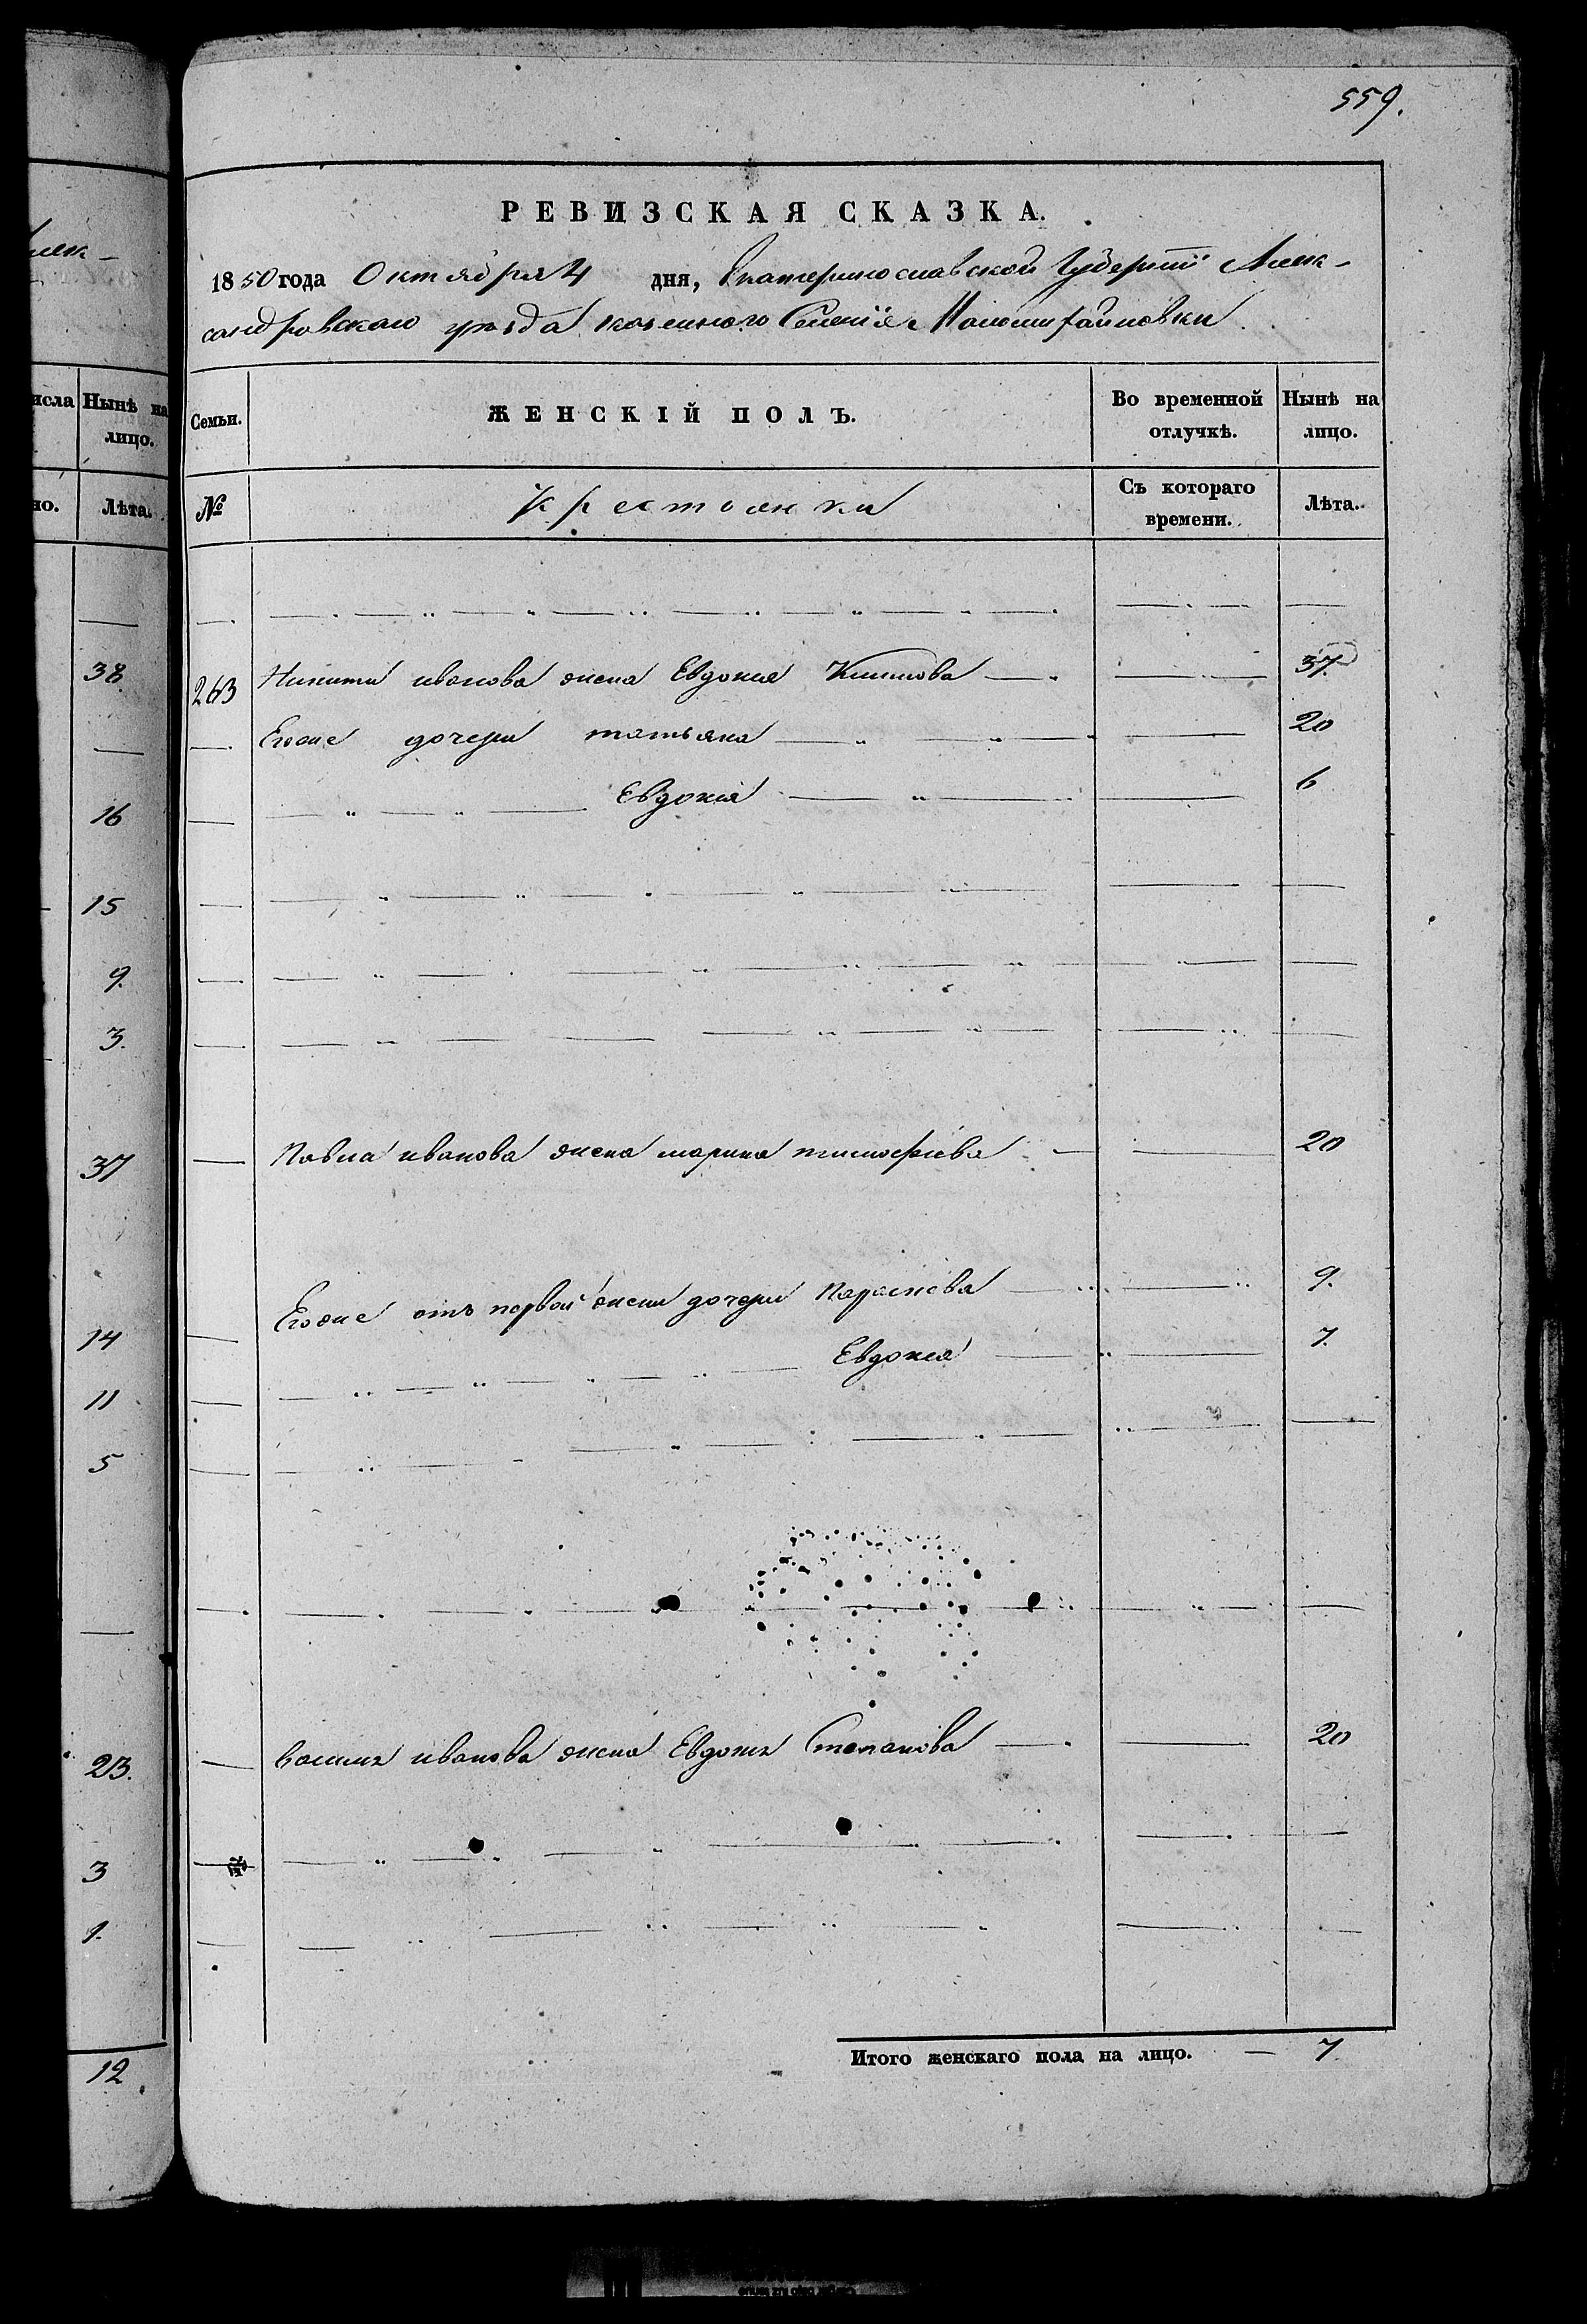 559.
РЕВИЗСКАЯ СКАЗКА.
1850 года Октября 4 дня, Екатеринославской Губернии Алек-
сандровскаго уезда казенного Селения
Семьи. ЖЕНСКІЙ ПОЛЪ. Во временной отлучкѣ. Нынѣ на лицо.
№ Крестьянки Съ котораго времени. Лѣта.
263 Никиты иванова жена Евдокия Климова 37.
Егоже дочери татьяна 20
Евдокия 6
Павла иванова жена марина тимофѣева 20
Егоже отъ первой жены дочери Параскева 9.
Евдокия 7.
василя иванова жена Евдокия Степанова 20
Итого женскаго пола на лицо. — 7.
исла Нынѣ на лицо.
но. Лѣта.
38.
16
15
9.
3.
37
14
11
5
23.
3
1.
12.